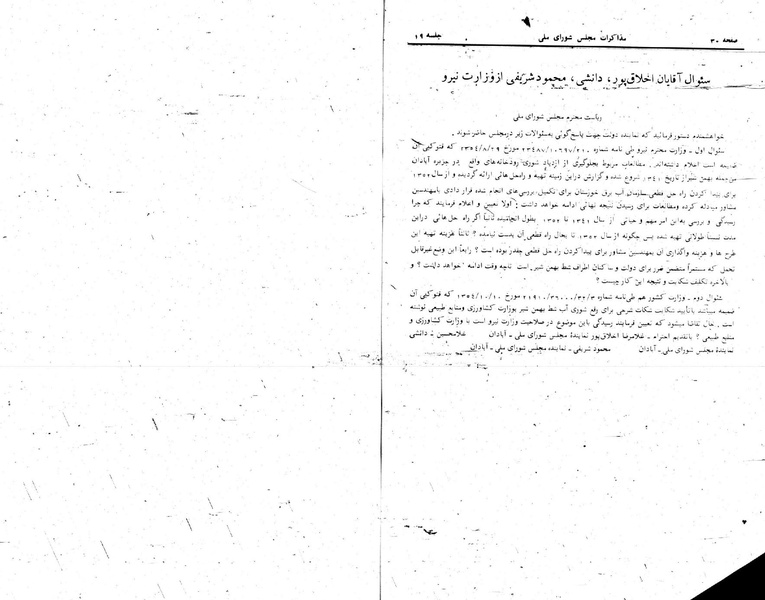 صفحه ۳۰ مذاکرات مجلس شورای ملی جلسه ۱۹
سئوال آقایان اخلاق‌پور، دانشی، محمود شریفی از وزارت نیرو
ریاست محترم مجلس شورای ملی
خواهشمنده دستور فرمائید که نماینده دولت جهت پاسخ‌گوئی به‌سئوالات زیر درمجلس حاضر شوند.
سئوال اول ـ وزارت محترم نیرو طی نامه شماره ۲۳۴۸۷/۱۰۶۹۷/۲۱۰ مورخ ۲۵۳۴/۸/۲۹ که فتوکپی آن
ضمیمه است اعلام داشته‌اند. مطالعات مربوط بجلوگیری از ازدیاد شوری رودخانه‌های واقع در جزیره آبادان
من‌جمله بهمن شیر از تاریخ ۱۳۴۱ شروع شده و گزارش دراین زمینه تهیه و راه‌حل‌هائی ارائه گردیده و از سال ۱۳۵۲
برای پیدا کردن راه حل قطعی سازمان آب برق خوزستان برای تکمیل بررسی‌های انجام شده قرار دادی بامهندسین
مشاور مبادله کرده ومطالعات برای رسیدن نتیجه نهائی ادامه خواهد داشت: اولا تعیین و اعلام فرمایند که چرا
رسیدگی و بررسی به‌این امر مهم و حیاتی از سال ۱۳۴۱ تا ۱۳۵۲ بطول انجامیده ثانیاً اگر راه حل‌هائی دراین
مدت نسبتاً طولانی تهیه شده پس چگونه از سال ۱۳۵۲ تا بحال راه قطعی آن بدست نیامده؟ ثالثاً هزینه تهیه این
طرح ها و هزینه واگذاری آن بمهندسین مشاور برای پیدا کردن راه حل قطعی چقدر بوده است؟ رابعاً این وضع غیرقابل
تحمل که مستمراً متضمن ضرر برای دولت و ساکنان اطراف شط بهمن شیر است تاچه وقت ادامه خواهد داشت؟ و
بالاخره تکلیف شکایت و نتیجه این کار چیست؟
سئوال دوم ـ وزارت کشور هم طی‌نامه شماره ۲۱۹۰۰/۳۶۰۰۰/۳۲/۳ مورخ ۲۵۳۴/۱۰/۱۰ که فتوکپی آن
ضمیمه میباشد باتأیید شکایت شکات شرحی برای رفع شوری آب شط بهمن شیر بوزارت کشاورزی ومنابع طبیعی نوشته
است. حال تقاضا میشود که تعیین فرمایند رسیدگی باین موضوع در صلاحیت وزارت نیرو است یا وزارت کشاورزی و
منابع طبیعی؟ باتقدیم احترام ـ غلامرضا اخلاق‌پور نمایندهٔ مجلس شورای ملی ـ آبادان غلامحسین دانشی
نمایندهٔ مجلس شورای ملی ـ آبادان محمود شریفی ـ نماینده مجلس شورای ملی ـ آبادان